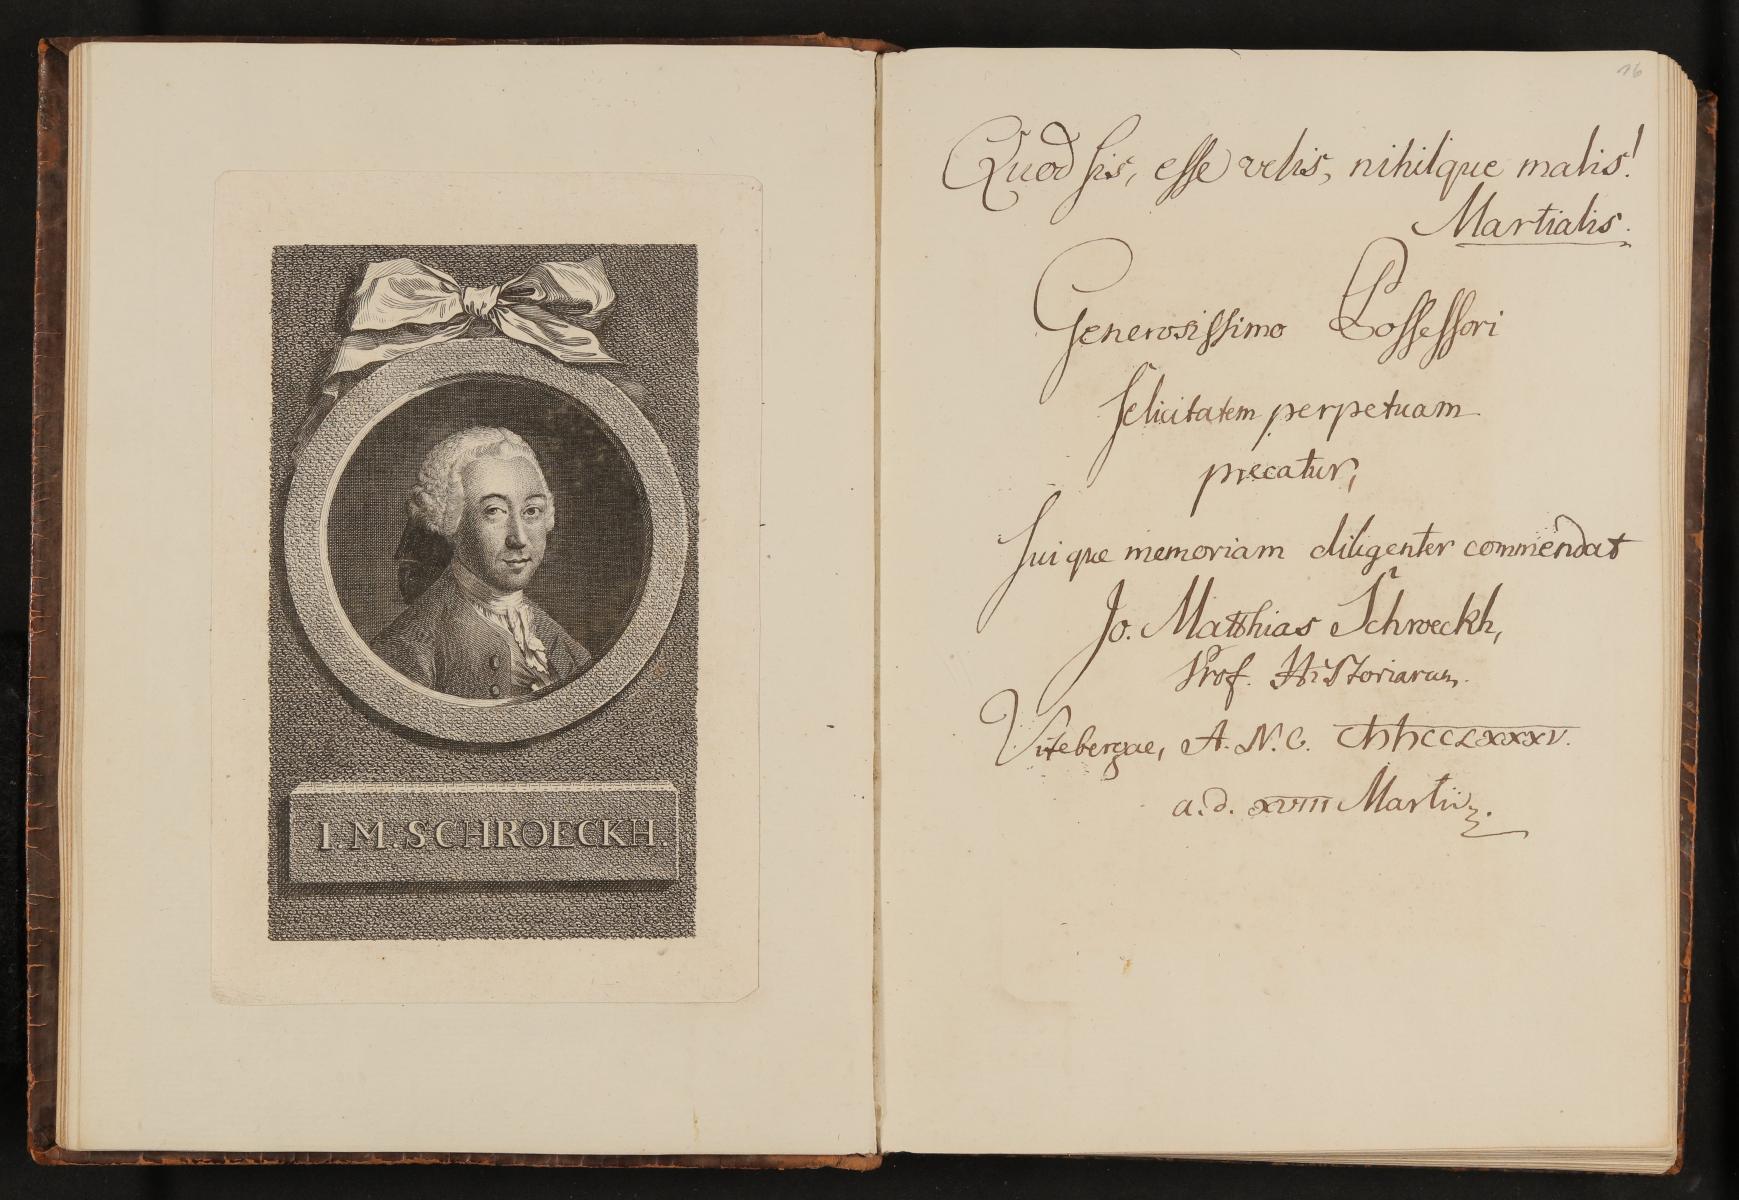 I. M. SCHROECKH.
16
Quod sis, esse velis, nihilque malis!
Martialis.
Generosissimo Possessori
felicitatem perpetuam
precatur,
suique memoriam diligenter commendat
Jo. Matthias Schroeckh,
Prof. Historiarum.
Vitebergae, A. N. C.
a. d. XVIII Martii.